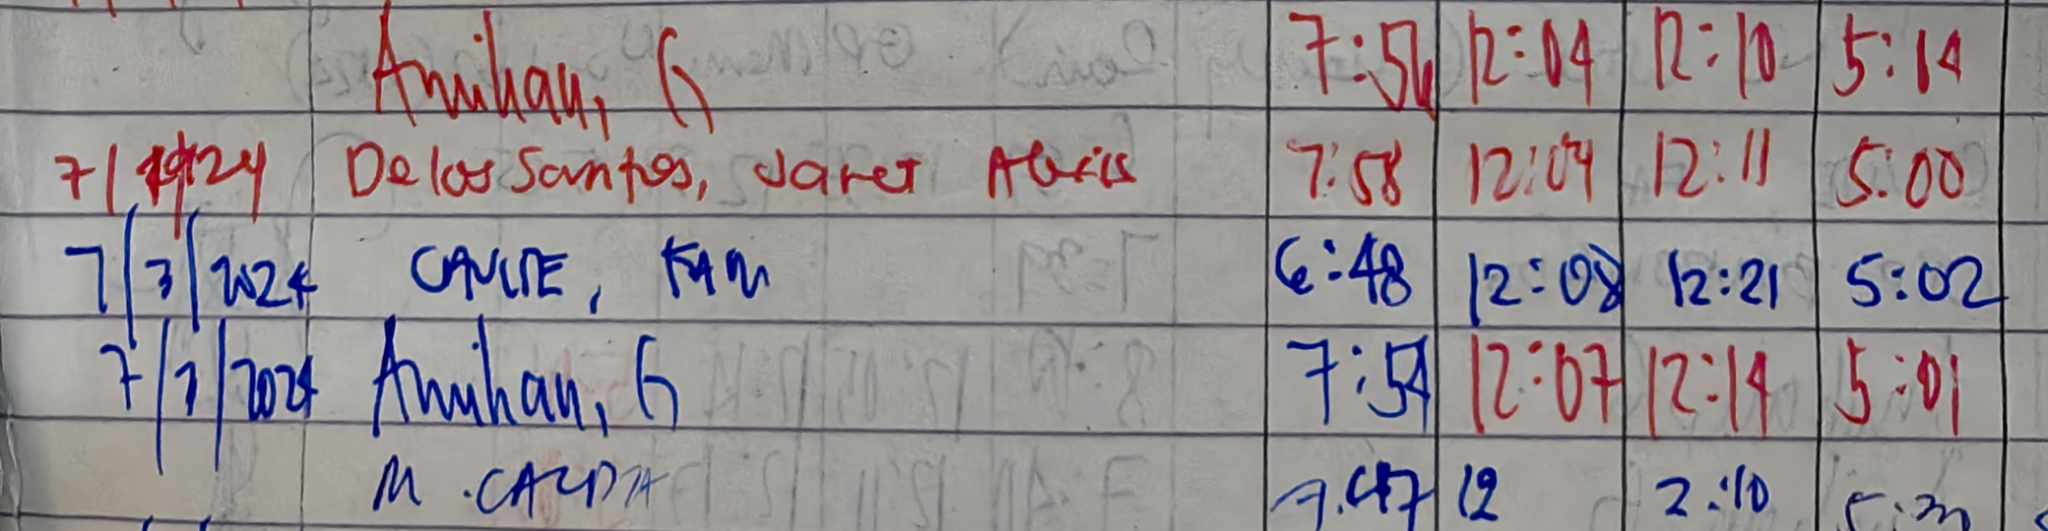 Amihan, G 7:54 12:04 12:10 5:14
7/ /24 Delos Santos, Janet Alexis 7:58 12:04 12:11 5:00
7/3/2024 CAÑETE, 6:48 12:08 12:21 5:02
7/3/2024 Amihan, G 7:54 12:07 12:14 5:01
M. 7:47 12 2:10